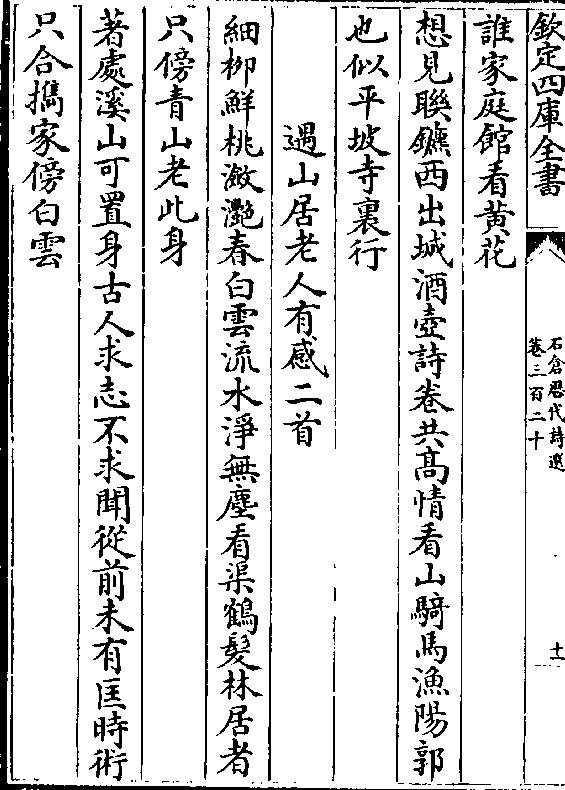 欽定四庫全書
石倉歷代詩選
卷三百二十
十一
誰家庭館看黃花
想見聯鑣西出城酒壺詩卷共髙情看山騎馬漁陽郭
也似平坡寺裏行
遇山居老人有感二首
細栁鮮桃瀲灧春白雲流水淨無塵看渠鶴髮林居者
只傍青山老此身
著處溪山可置身古人求志不求聞從前未有匡時術
只合擕家傍白雲